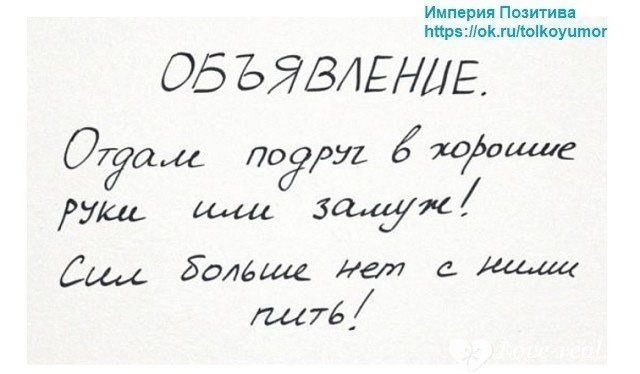 Империя Позитива
https://ok.ru/tolkoyumor
ОБЪЯВЛЕНИЕ.
Отдам подруг в хорошие
руки или замуж!
Сил больше нет с ними
пить!
Love-real